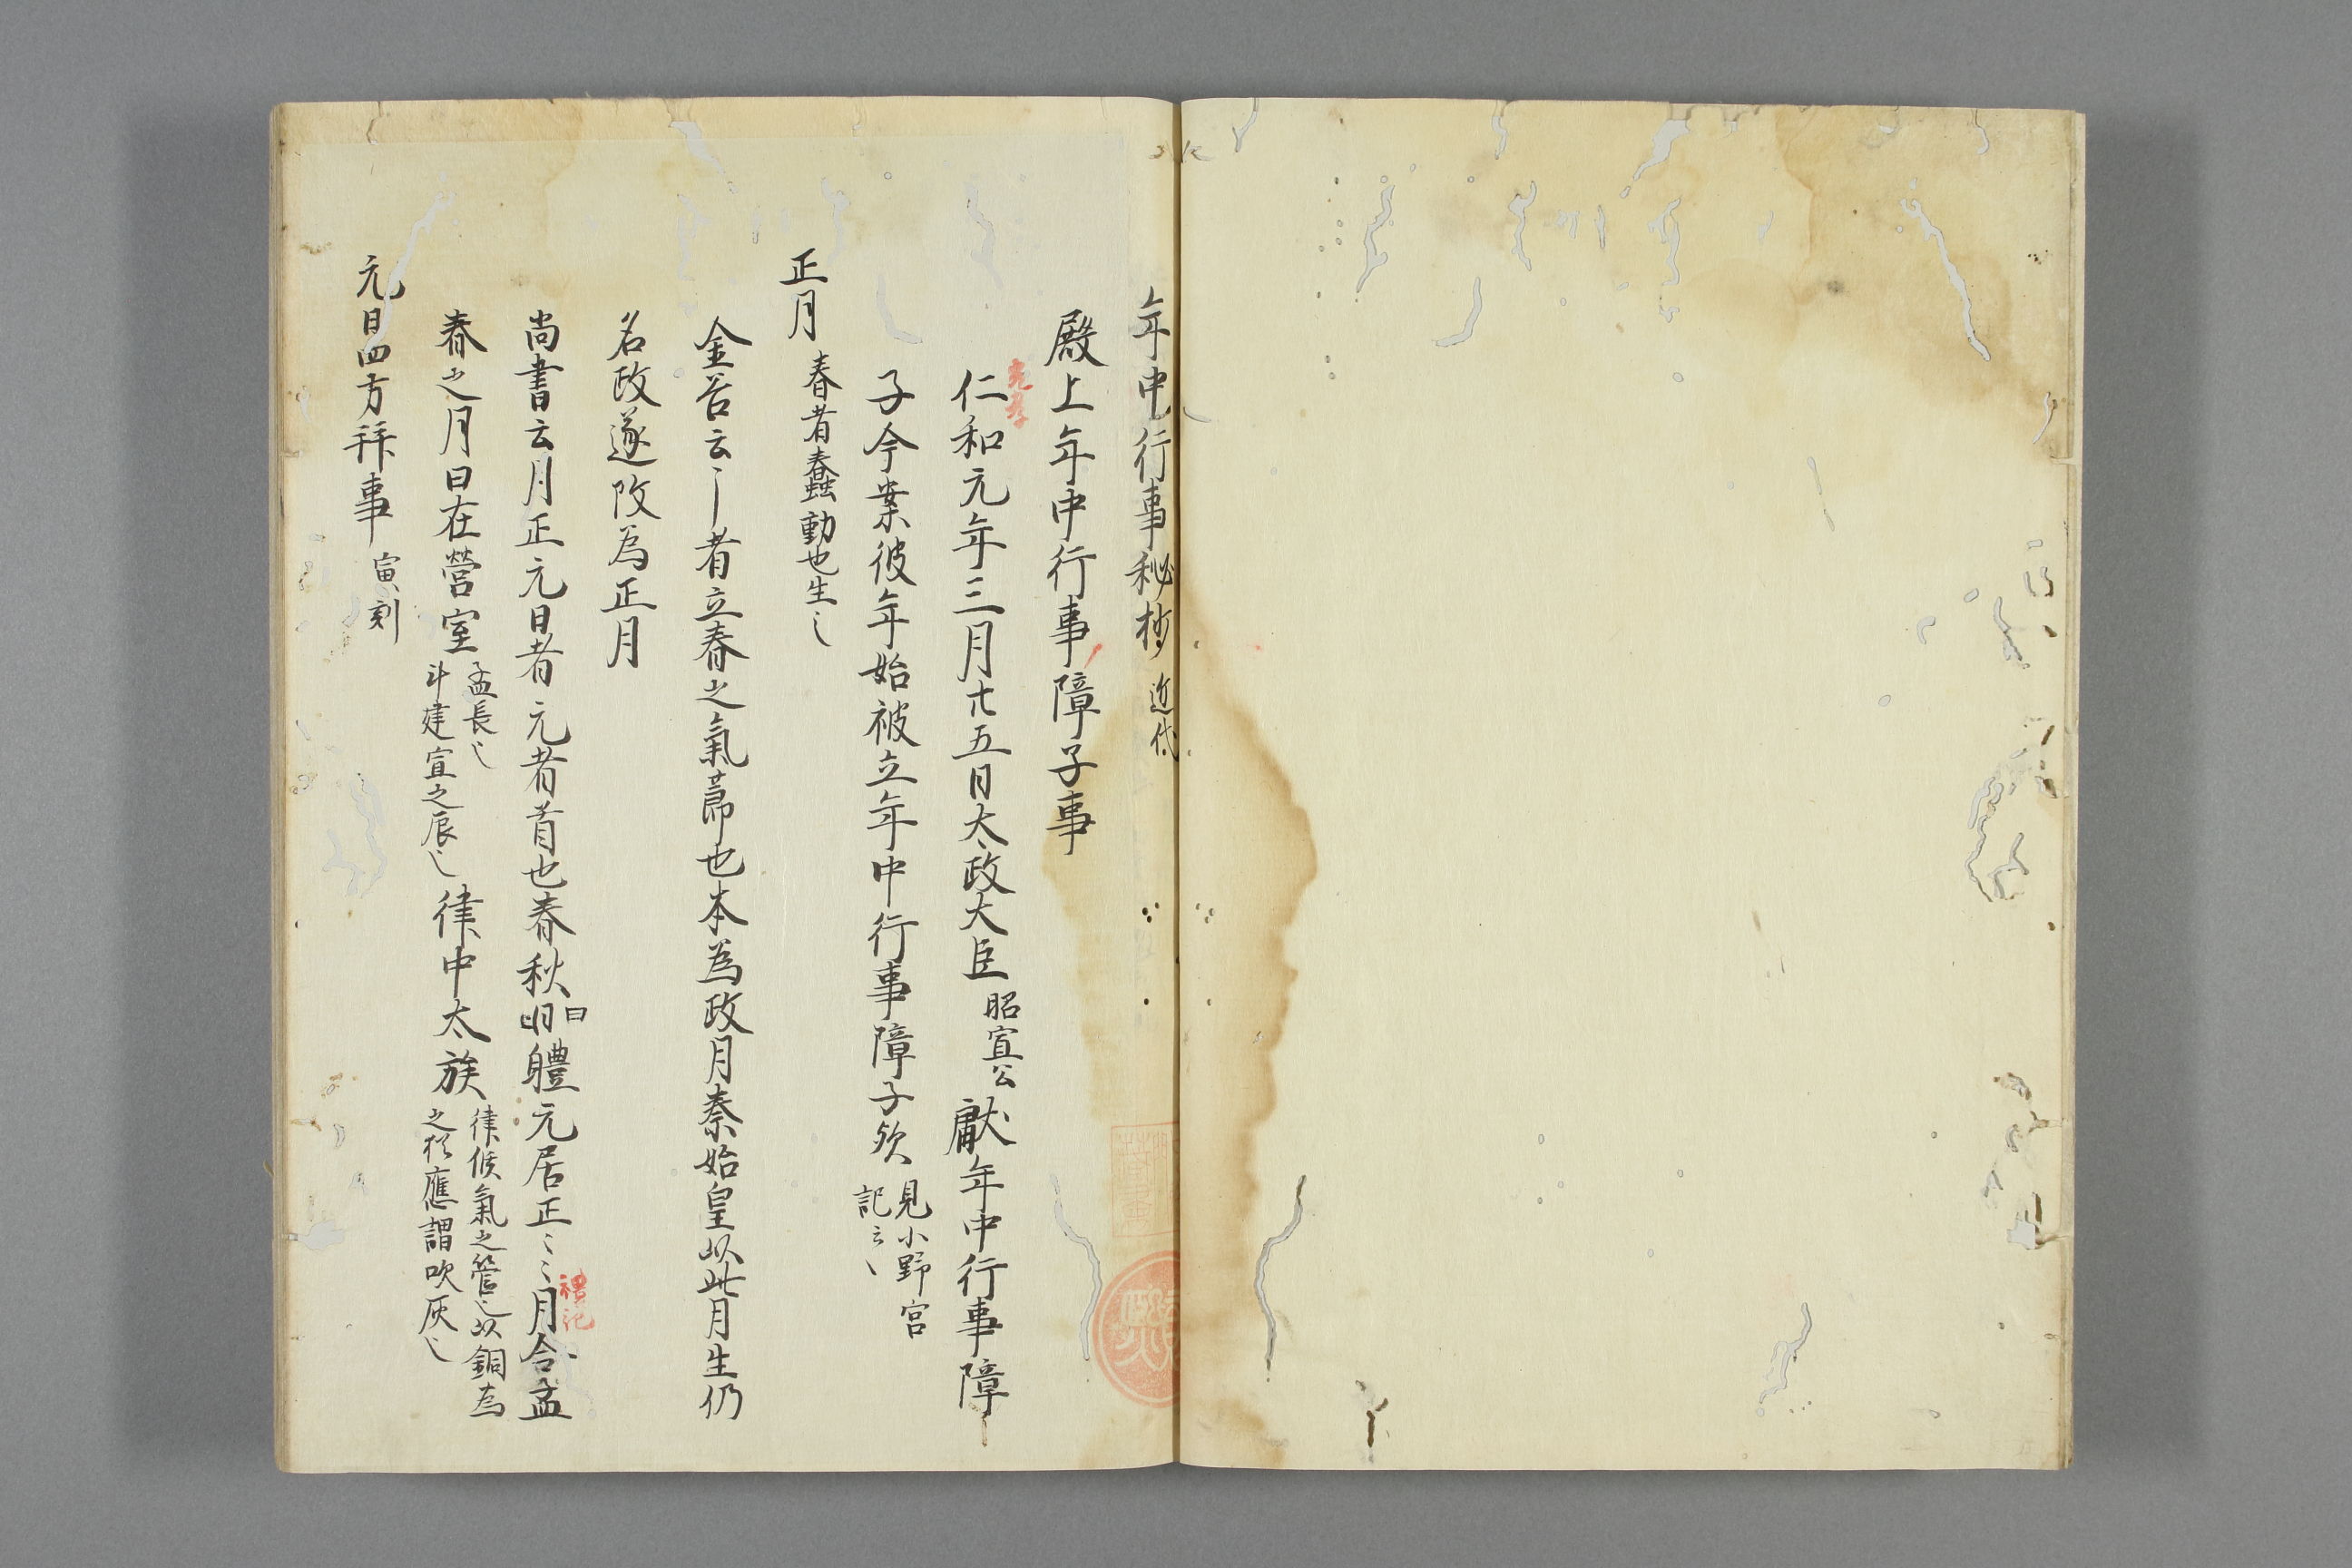 年中行事秘抄 近代
殿上年中行事障子事
光孝
仁和元年三月廿五日太政大臣 昭宣公 献年中行事障
子今案彼年始被立年中行事障子欤 見小野宮
記云〻
正月 春者蠢動也生〻
金谷云〻者立春之氣莭也本為政月秦始皇以此月生仍
名政遂改為正月
尚書云月正元日者元者首也春秋曰 體元居正〻〻月令孟
禮記
春之月日在營室 孟長〻
斗建寅之辰〻 律中太族 律候氣之管〻以銅為
之 應謂吹灰〻
元日四方拜事 寅刻